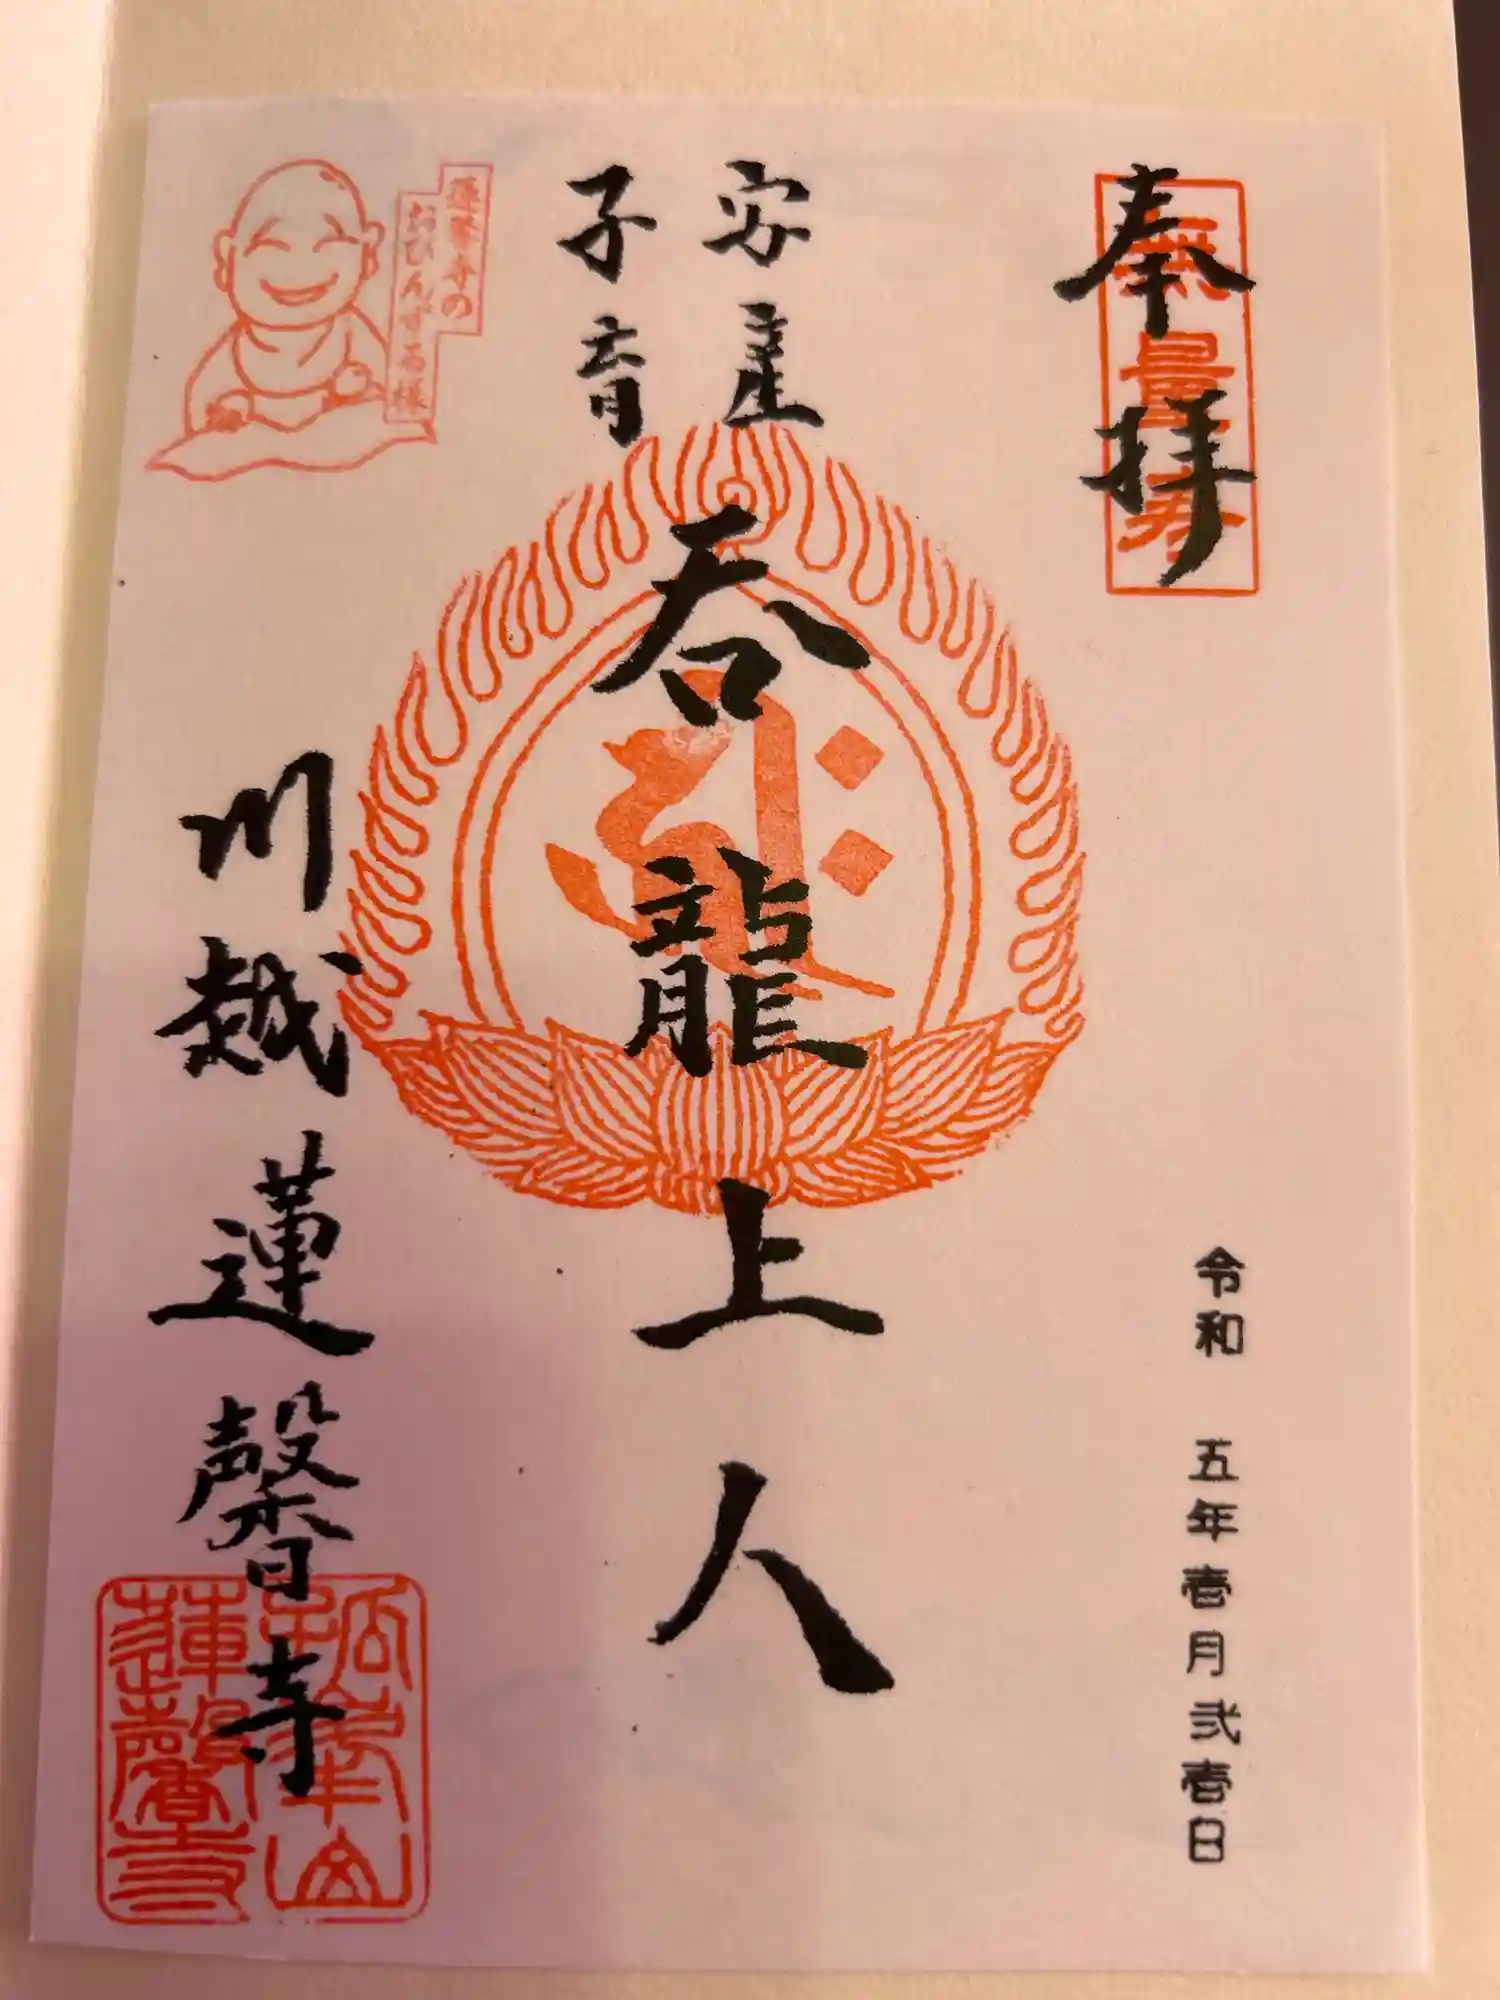 奉拝
無量寿
令和 五年壱月弐壱日
安産
子育
呑龍上人
蓮馨寺の
おびんずる様
川越蓮馨寺
孤峯山
蓮馨寺